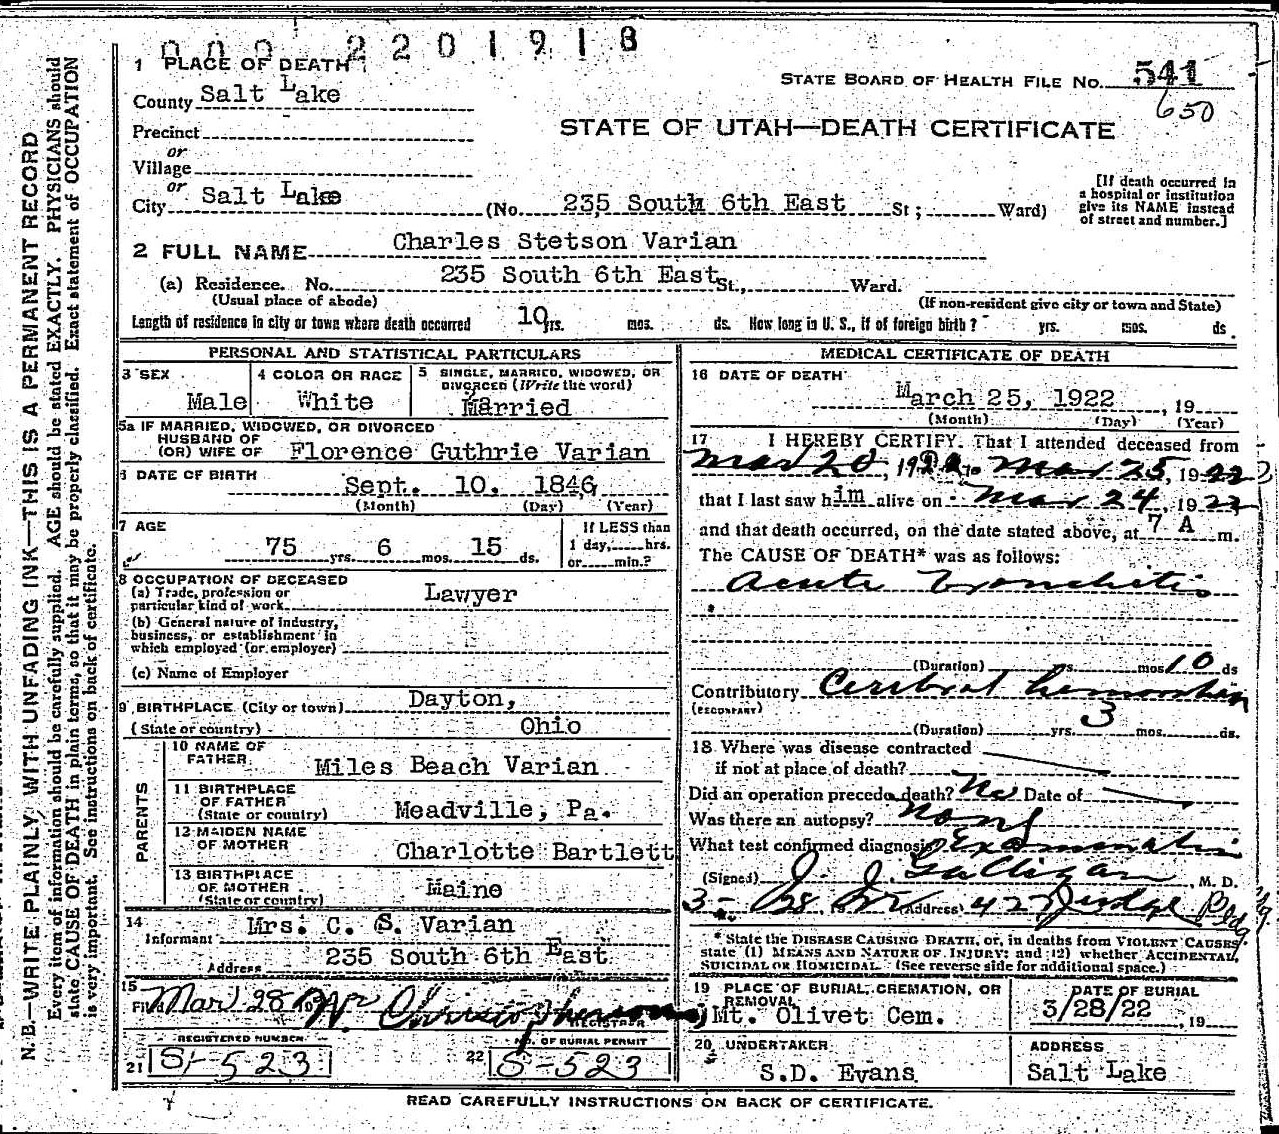 000 2201918
1 PLACE OF DEATH
STATE BOARD OF HEALTH FILE No. 541
650
County Salt Lake
STATE OF UTAH—DEATH CERTIFICATE
Precinct
or
Village
or
City Salt Lake (No. 235 South 6th East St; Ward)
[If death occurred in
a hospital or institution
give its NAME instead
of street and number.]
2 FULL NAME Charles Stetson Varian
(a) Residence. No. 235 South 6th East St., Ward.
(Usual place of abode) (If non-resident give city or town and State)
Length of residence in city or town where death occurred 10 yrs. mos. ds. How long in U. S., if of foreign birth? yrs. mos. ds.
PERSONAL AND STATISTICAL PARTICULARS
3 SEX Male
4 COLOR OR RACE White
5 SINGLE, MARRIED, WIDOWED, OR
DIVORCED (Write the word)
Married
5a IF MARRIED, WIDOWED, OR DIVORCED
HUSBAND OF
(OR) WIFE OF Florence Guthrie Varian
6 DATE OF BIRTH Sept. 10. 1846
(Month) (Day) (Year)
7 AGE
75 yrs. 6 mos. 15 ds.
If LESS than
1 day, hrs.
or min.?
8 OCCUPATION OF DECEASED
(a) Trade, profession or
particular kind of work Lawyer
(b) General nature of industry,
business, or establishment in
which employed (or employer)
(c) Name of Employer
9 BIRTHPLACE (City or town) Dayton,
(State or country) Ohio
PARENTS
10 NAME OF
FATHER Miles Beach Varian
11 BIRTHPLACE
OF FATHER
(State or country) Meadville, Pa.
12 MAIDEN NAME
OF MOTHER Charlotte Bartlett
13 BIRTHPLACE
OF MOTHER
(State or country) Maine
14
Informant Mrs. C. S. Varian
Address 235 South 6th East
15
Filed Mar 28
REGISTRAR
REGISTERED NUMBER
21 S-523
NO. OF BURIAL PERMIT
22 S-523
MEDICAL CERTIFICATE OF DEATH
16 DATE OF DEATH
March 25, 1922, 19
(Month) (Day) (Year)
17 I HEREBY CERTIFY. That I attended deceased from
Mar 20, 1922 to Mar 25, 1922
that I last saw him alive on Mar 24, 1922
and that death occurred, on the date stated above, at 7 A m.
The CAUSE OF DEATH* was as follows:
Acute Bronchitis
(Duration) yrs. mos 10 ds
Contributory Cerebral hemorrhage
(SECONDARY)
(Duration) yrs. 3 mos. ds.
18 Where was disease contracted
if not at place of death?
Did an operation precede death? No Date of
Was there an autopsy? None
What test confirmed diagnosis? Examination
(Signed) J. J. Galligan, M. D.
3-28, 1922 (Address) 427 Judge Bldg
* State the DISEASE CAUSING DEATH, or, in deaths from VIOLENT CAUSES,
state (1) MEANS AND NATURE OF INJURY; and (2) whether ACCIDENTAL,
SUICIDAL OR HOMICIDAL. (See reverse side for additional space.)
19 PLACE OF BURIAL, CREMATION, OR
REMOVAL
Mt. Olivet Cem.
DATE OF BURIAL
3/28/22, 19
20 UNDERTAKER
S.D. Evans
ADDRESS
Salt Lake
READ CAREFULLY INSTRUCTIONS ON BACK OF CERTIFICATE.
N. B.—WRITE PLAINLY, WITH UNFADING INK—THIS IS A PERMANENT RECORD
Every item of information should be carefully supplied. AGE should be stated EXACTLY. PHYSICIANS should
state CAUSE OF DEATH in plain terms, so that it may be properly classified. Exact statement of OCCUPATION
is very important. See instructions on back of certificate.